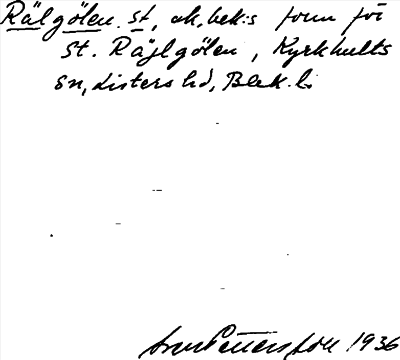 Rälgölen st, ek. bek:s form för
St. Räjlgölen, Kyrkhults
sn, Listers hd, Blek. l.
Pettersson 1936